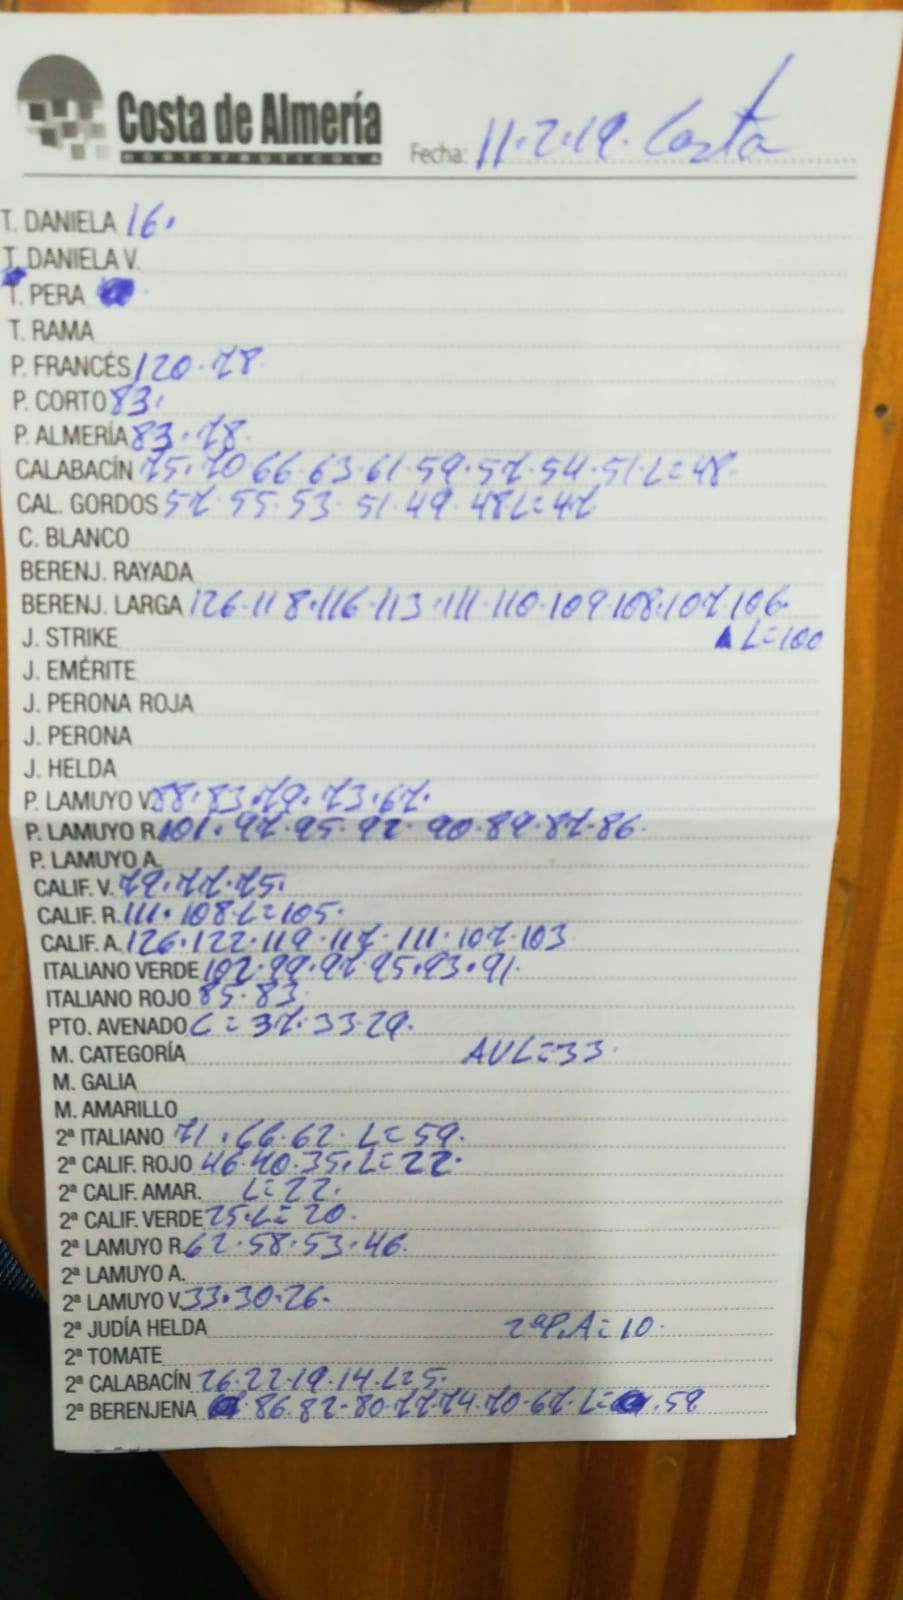 Costa de Almería
HORTOFRUTICOLA
Fecha: 11.2.19. Costa
T. DANIELA 16.
T. DANIELA V.
T. PERA
T. RAMA
P. FRANCÉS 120.78
P. CORTO 83.
P. ALMERÍA 83.78.
CALABACÍN 75.70 66.63.61.59.57.54.51.L=48.
CAL. GORDOS 57.55.53.51.49.48L=47.
C. BLANCO
BERENJ. RAYADA
BERENJ. LARGA 126.118.116.113.111.110.109.108.107.106.
J. STRIKE L=100
J. EMÉRITE
J. PERONA ROJA
J. PERONA
J. HELDA
P. LAMUYO V. 88.83.79.73.67.
P. LAMUYO R. 101.97.95.92.90.89.87.86.
P. LAMUYO A.
CALIF. V. 79.77.75.
CALIF. R. 111.108.L=105.
CALIF. A. 126.122.119.117.111.107.103
ITALIANO VERDE 102.99.97.95.93.91.
ITALIANO ROJO 85.83.
PTO. AVENADO C=37.33.29.
M. CATEGORÍA AVL=33.
M. GALIA
M. AMARILLO
2ª ITALIANO 71.66.62.L=59.
2ª CALIF. ROJO 46.40.35.L=22.
2ª CALIF. AMAR. L=22.
2ª CALIF. VERDE 25.L=20.
2ª LAMUYO R. 62.58.53.46.
2ª LAMUYO A.
2ª LAMUYO V. 33.30.26.
2ª JUDÍA HELDA 2ªP.A=10.
2ª TOMATE
2ª CALABACÍN 26.22.19.14.L=5.
2ª BERENJENA 86.82.80.77.74.70.67.L= .59